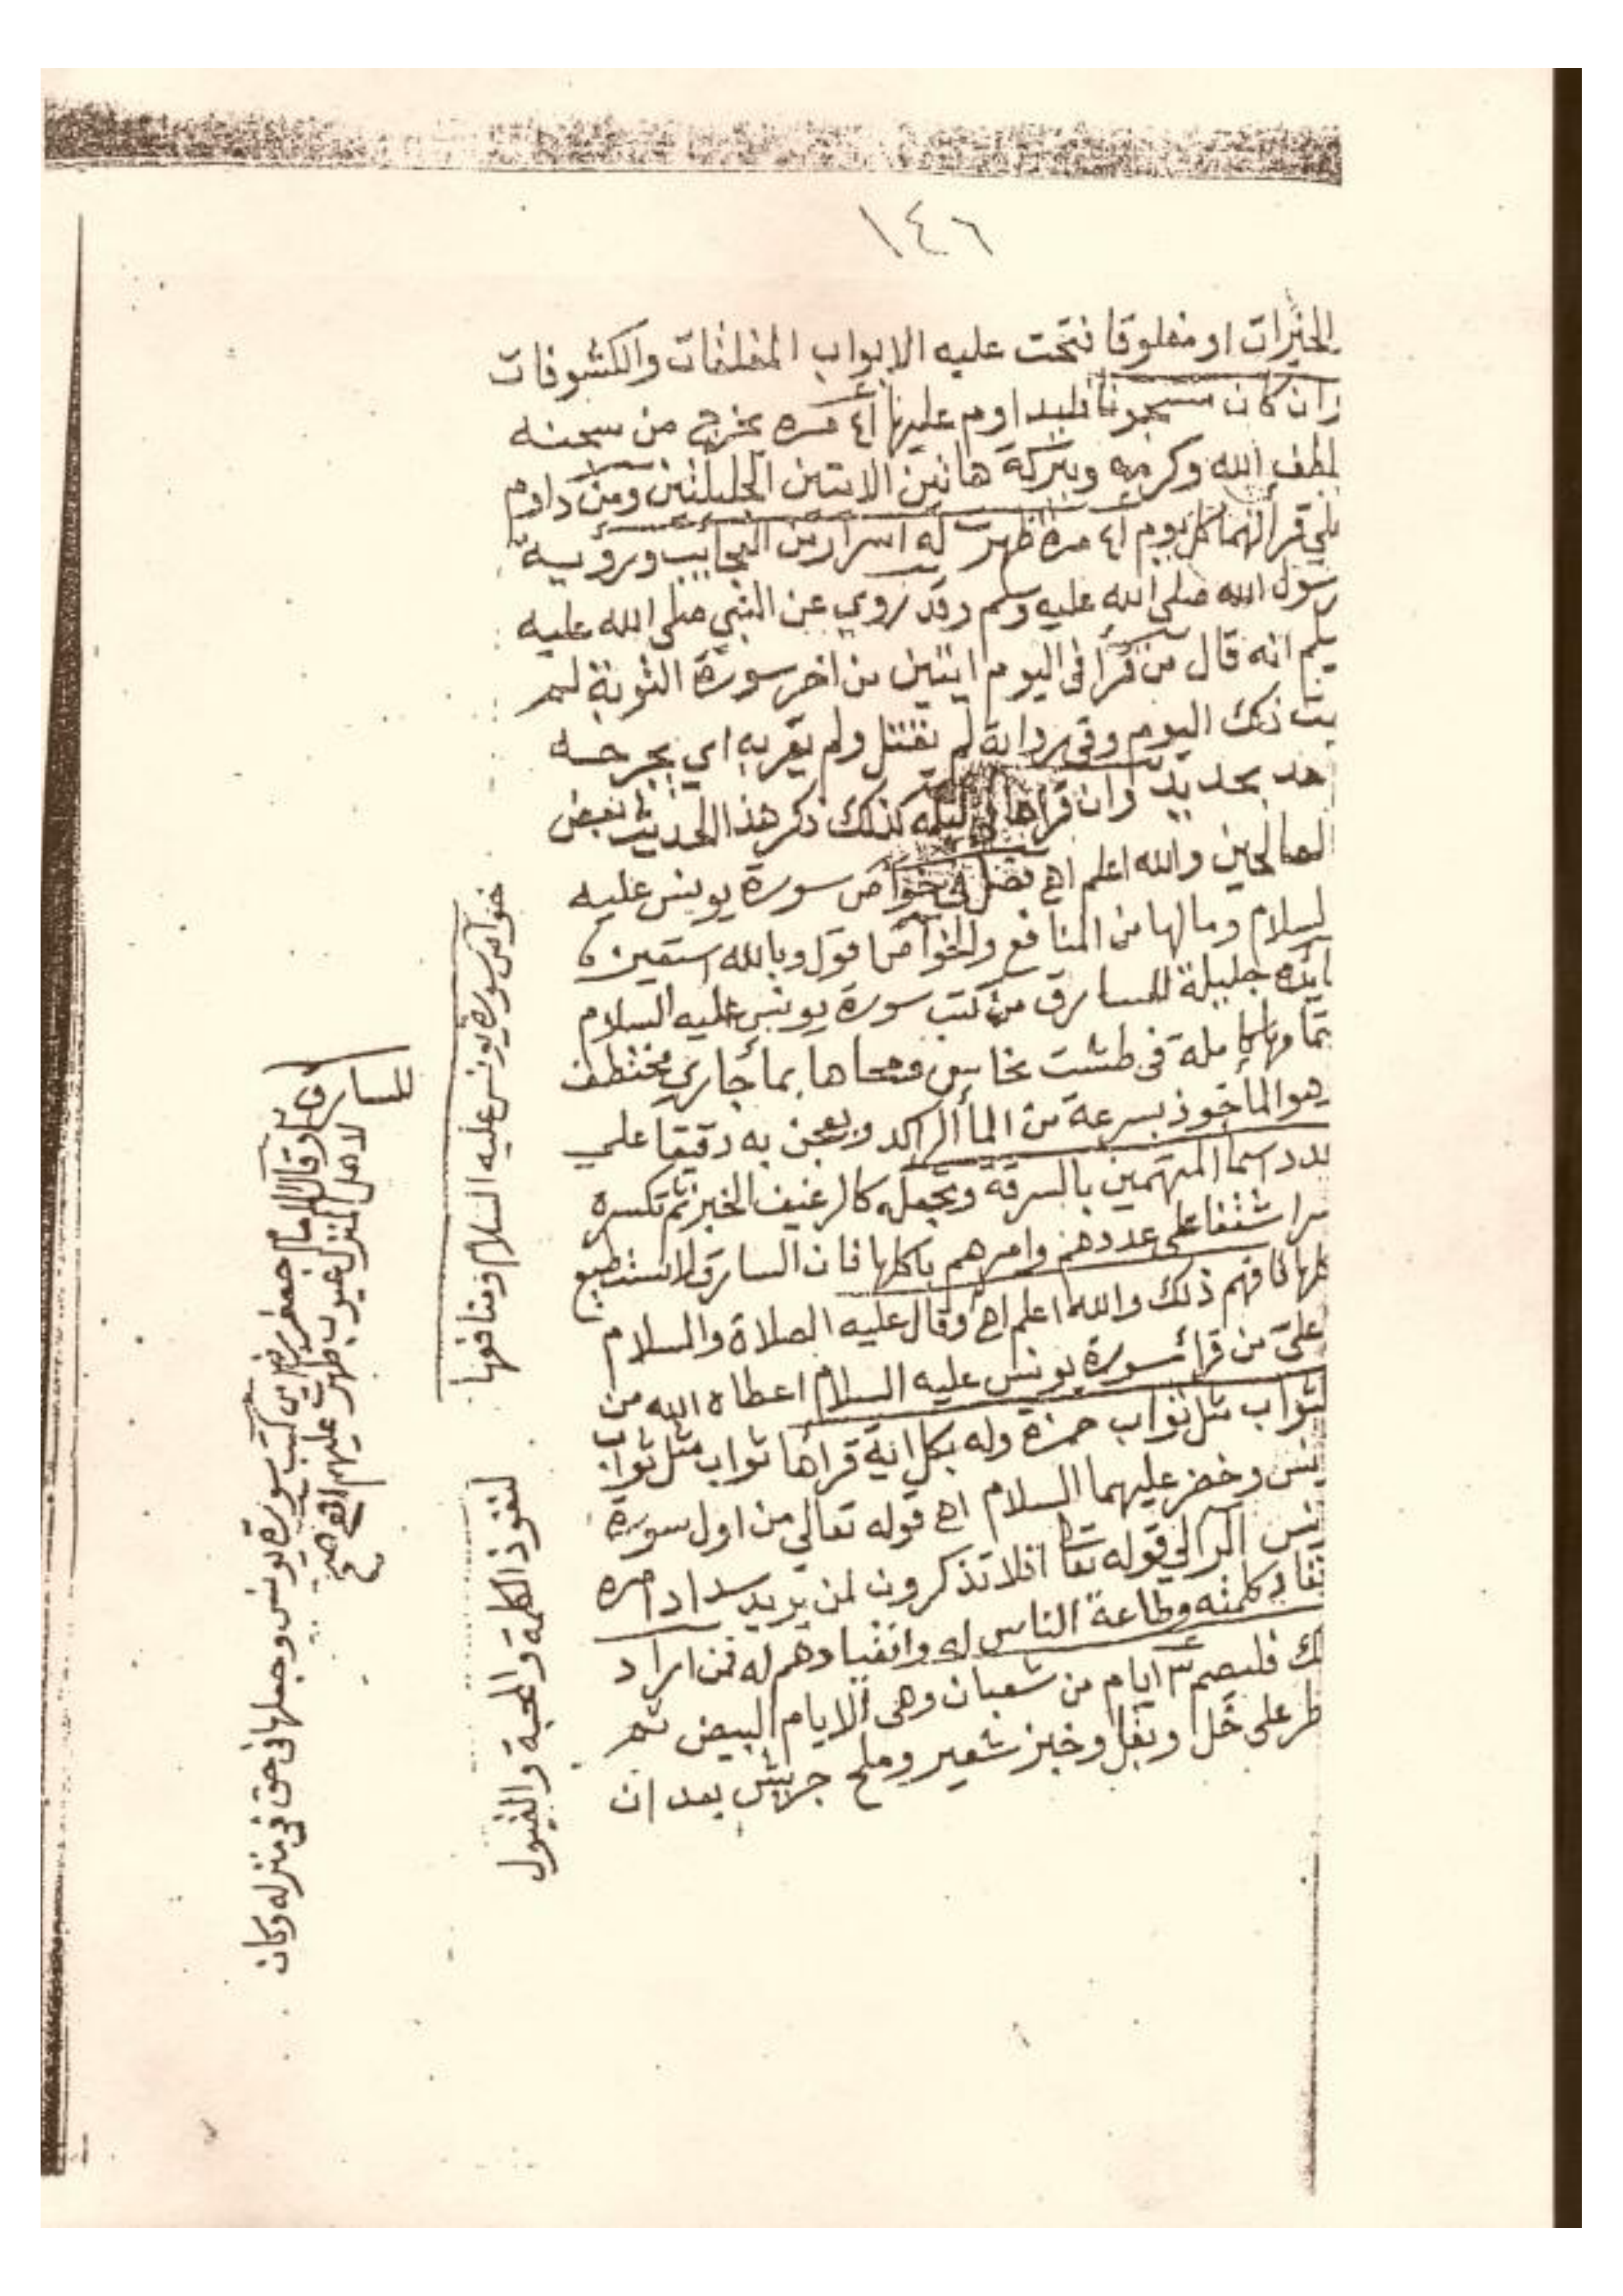 ١٤٦
الخيرات او مغلوقا فتحت عليه الابواب المغلقات والكشوفات
وان كان مسجونا فليداوم عليها ٤١ مره يخرج من سجنه
بلطف الله وكرمه وببركة هاتين الايتين الجليلتين ومن داوم
علي قرأتهما كل يوم ٤١ مرة ظهرت له اسرار من العجايب ورؤية
رسول الله صلى الله عليه وسلم وقد روي عن النبي صلى الله عليه
سلم انه قال من قرأ فى اليوم ايتين من اخر سورة التوبة لم
يمت ذلك اليوم وفى رواية لم يقتل ولم يقربه اي يجرحه
احد بحديد وان قرأها في ليلته كذلك ذكر هذا الحديث بعض
الصالحين والله اعلم اهـ فصل في خواص سورة يونس عليه
السلام ومالها من المنافع والخواص اقول وبالله استعين
فايده جليلة للسارق من كتب سورة يونس عليه السلام
بتمامها كاملة فى طشت نحاس ومحاها بمأ جاري مختطف
وهو المأخوذ بسرعة من المأ الراكد ويعجن به دقيقا علي
عدد اسما المتهمين بالسرقة ويجعله كالرغيف الخبز ثم تكسره
على عددهم وامرهم باكلها فان السارق لا يستطيع
اكلها فافهم ذلك والله اعلم اهـ وقال عليه الصلاة والسلام
ياعلي من قرأ سورة يونس عليه السلام اعطاه الله من
الثواب مثل ثواب حمزة وله بكل اية قرأها ثواب مثل ثواب
وخضر عليهما السلام اهـ قوله تعالي من اول سورة
يونس الر الي قوله تعا افلا تذكرون لمن يريد سداد امره
ونفاد كلمته وطاعة الناس له وانقيادهم له فمن اراد
ذلك فليصم ٣ ايام من شعبان وهى الايام البيض ثم
يفطر على خل وبقل وخبز شعير وملح جريش بعد ان
خواص سورة يونس عليه السلام ومنافعها
لنفوذ الكلمة والمحبة والقبول
للسارق
وقال الامام جعفر رض من كتب سورة يونس وجعلها فى حق فى منزله وكان
لاهل المنزل عيوب ظهرت عليهم اهـ صح